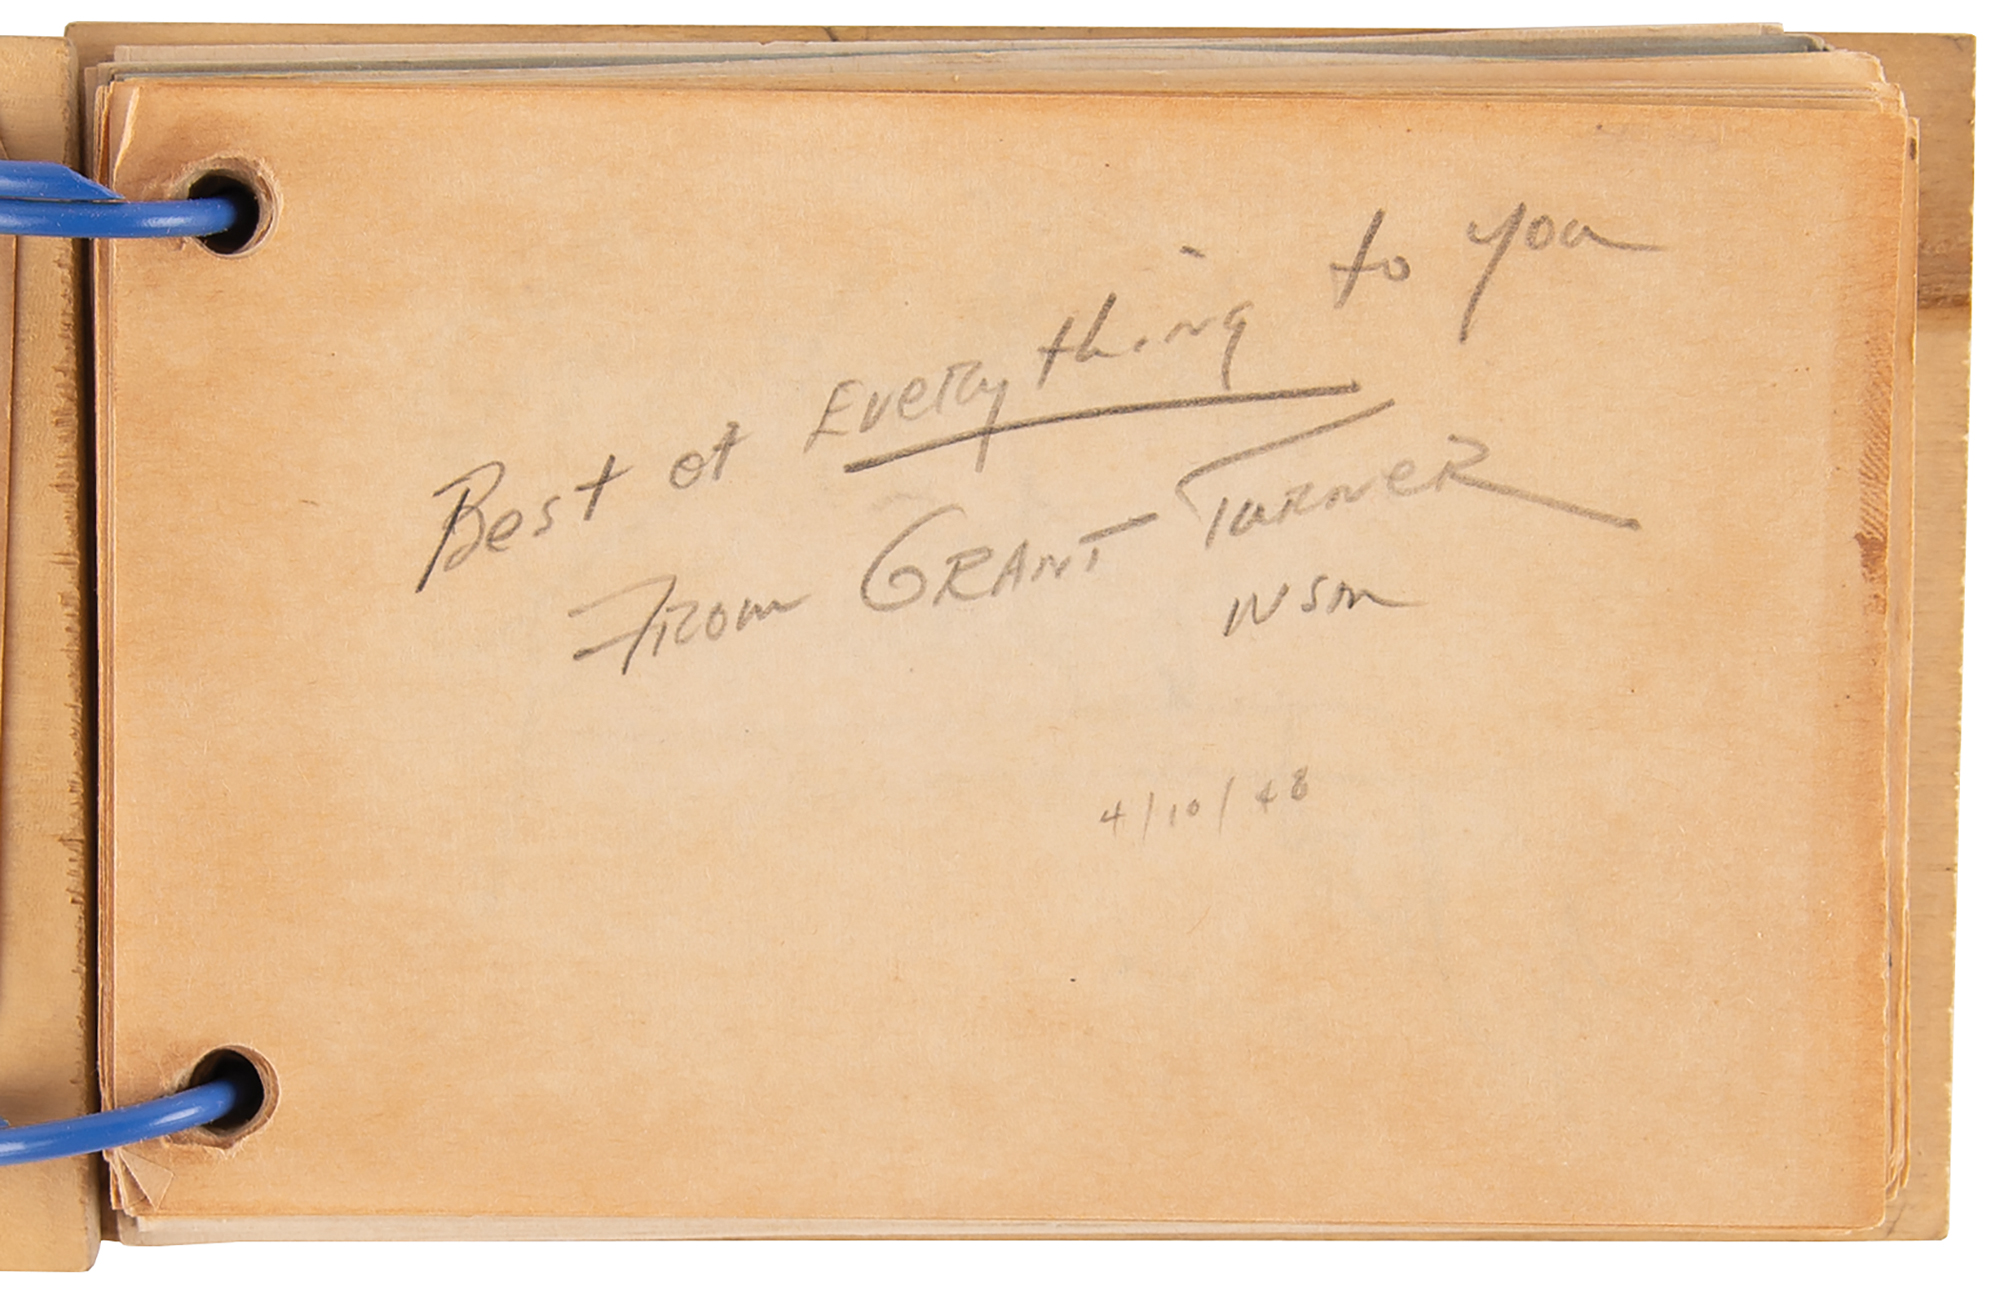 Best of Everything to you
From GRANT TURNER
WSM
4/10/48